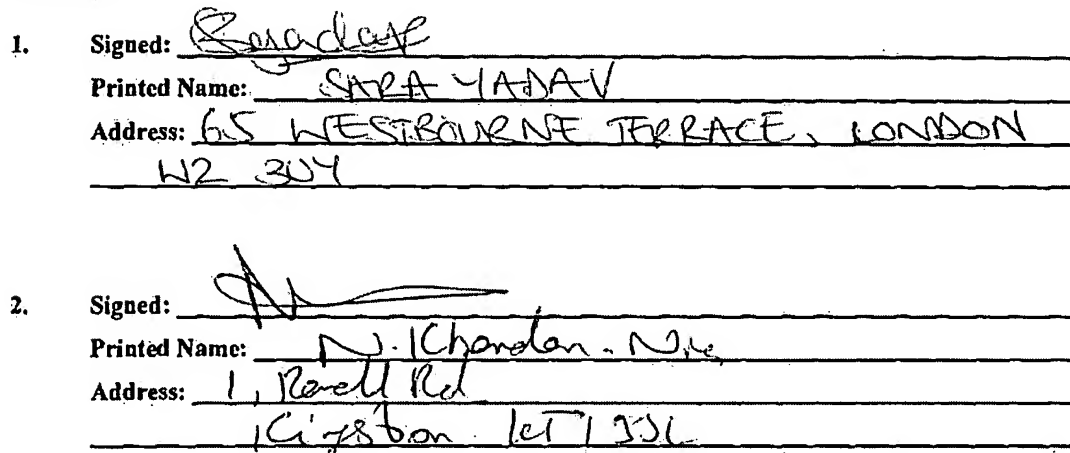 1. Signed:
Printed Name: SARA YADAV
Address: 65 WESTBOURNE TERRACE, LONDON
W2 3UY
2. Signed:
Printed Name: N. Khandan
Address: 1, Revell Rd
Kingston KT1 3SL